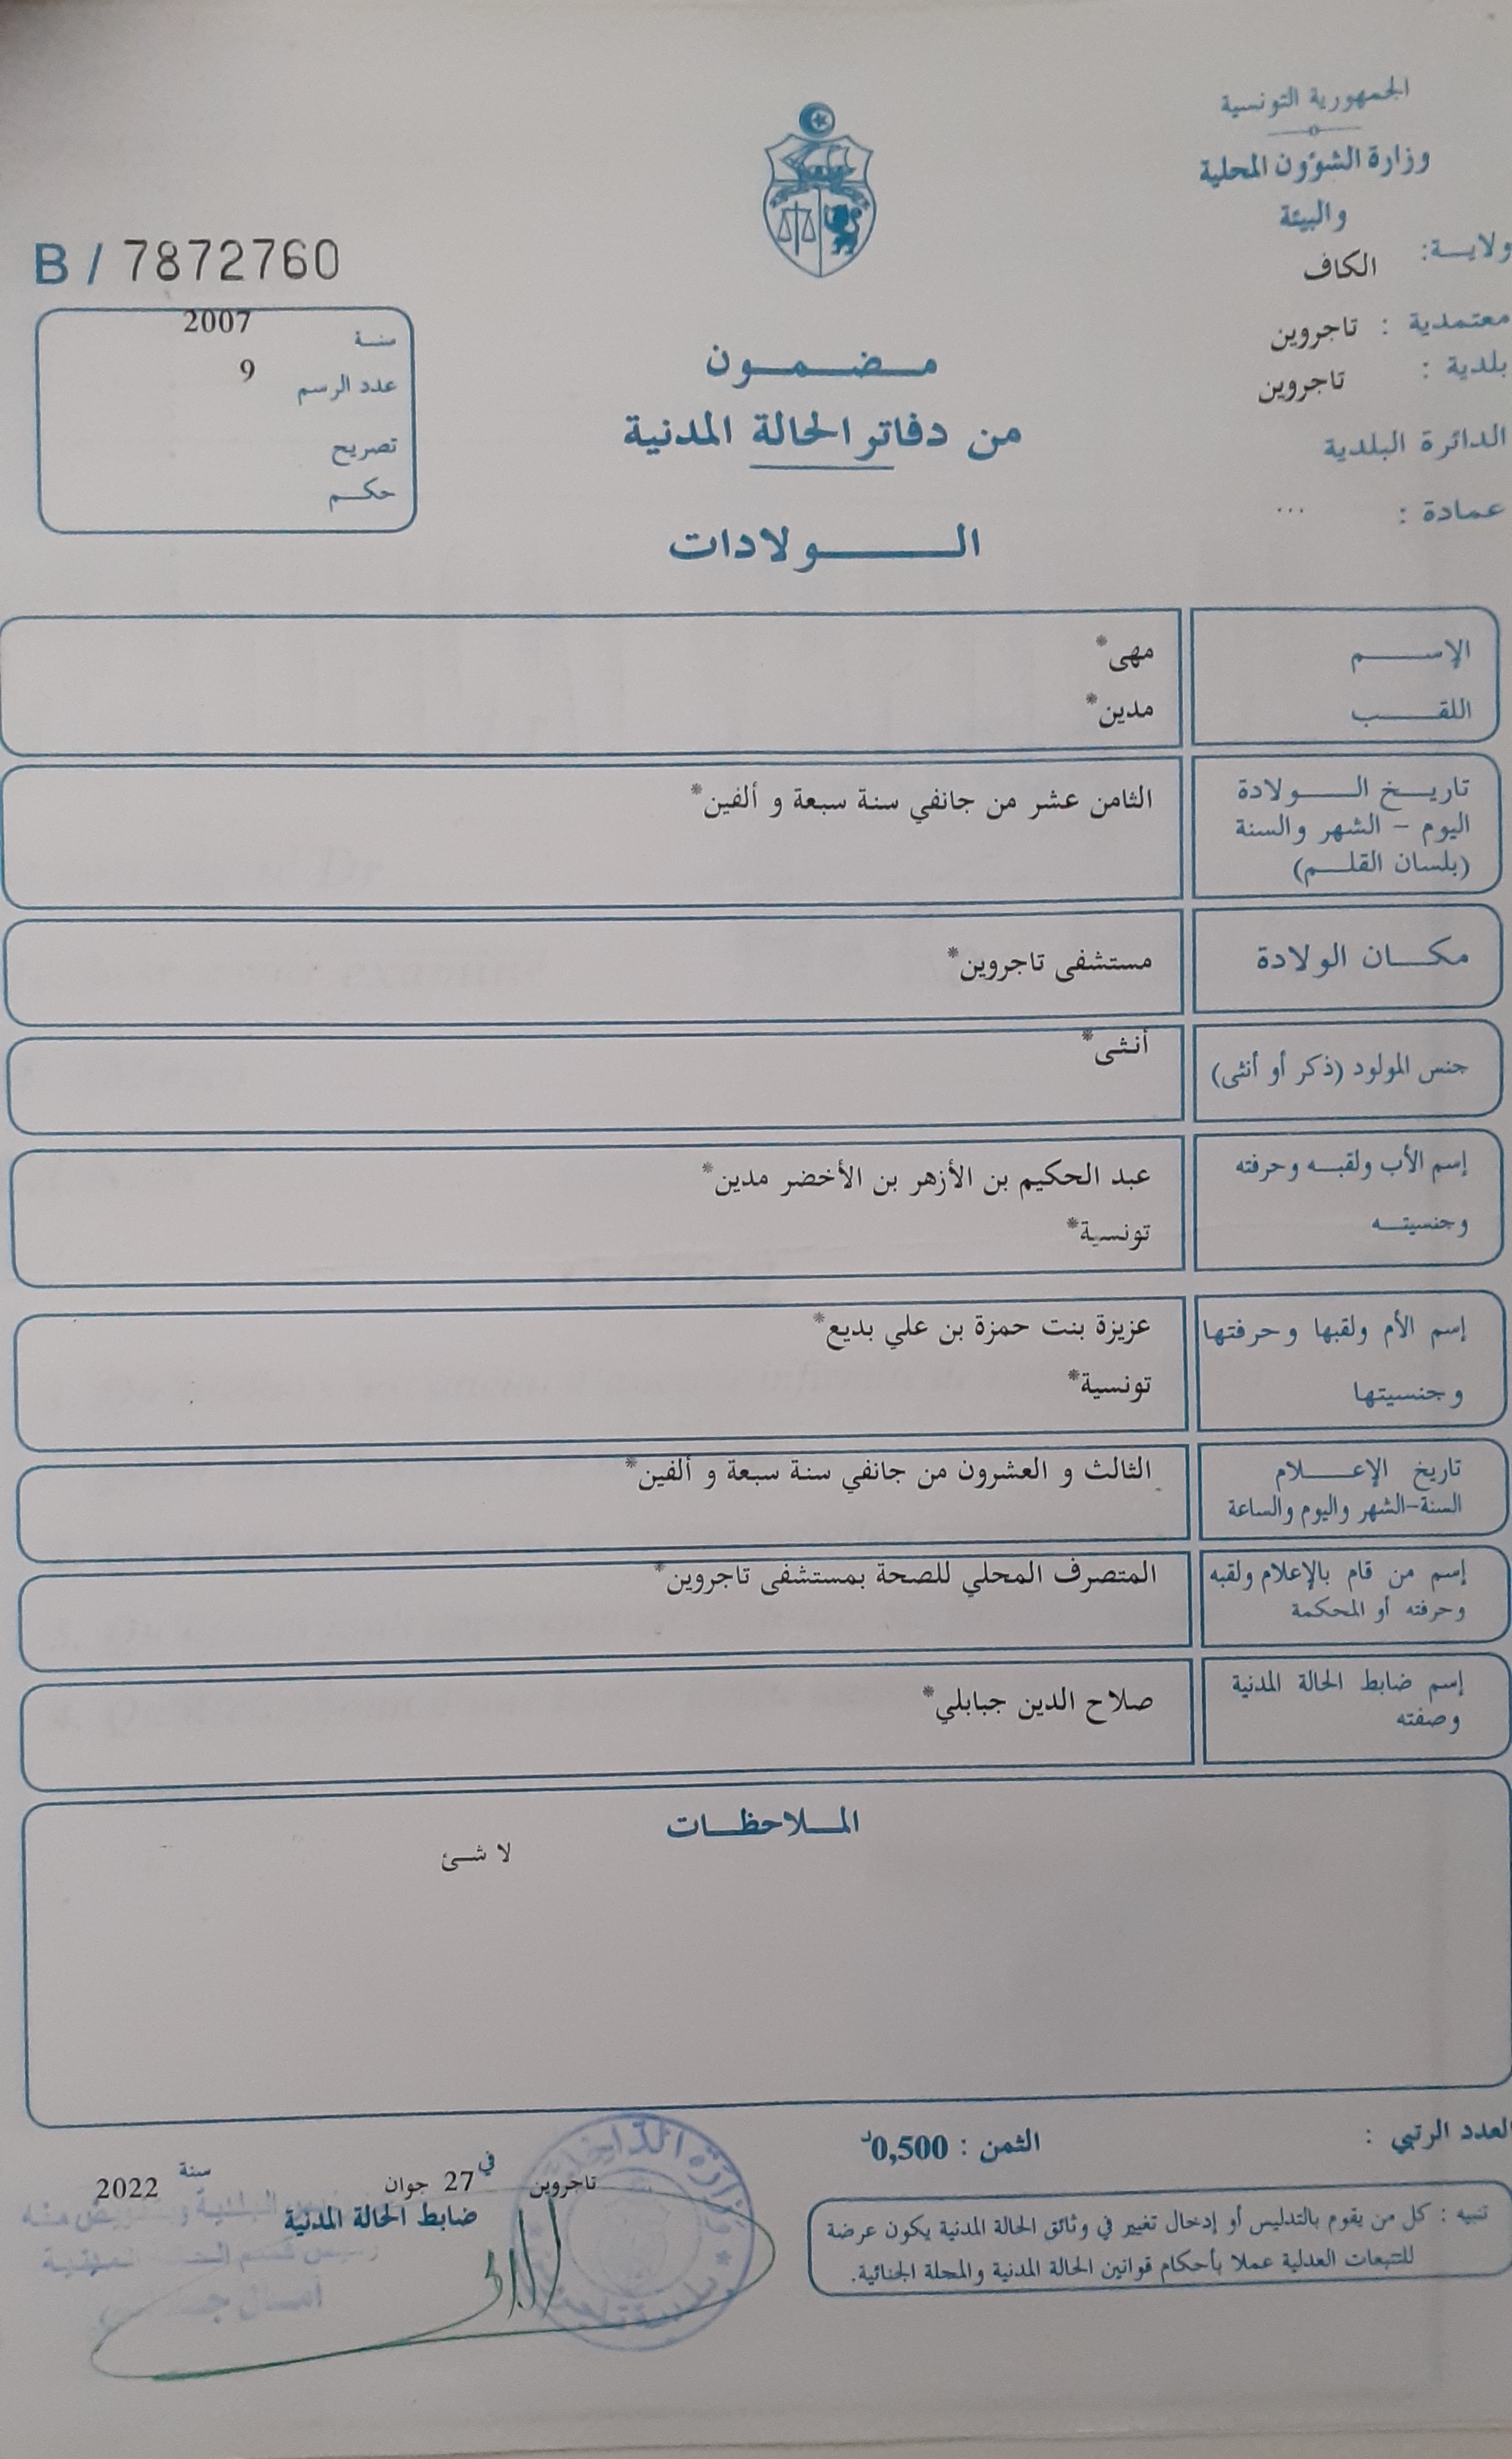 الجمهورية التونسية
وزارة الشؤون المحلية
والبيئة
ولايـــة: الكاف
معتمدية : تاجروين
بلدية : تاجروين
الدائرة البلدية
عمادة : ...
B / 7872760
سنـــة 2007
عدد الرسم 9
تصريح
حكـــم
مـــضـــمـــون
من دفاتر الحالة المدنية
الـــــولادات
الإســـــم مهى*
اللقـــــب مدين*
تاريـــخ الـــــولادة الثامن عشر من جانفي سنة سبعة و ألفين*
اليوم – الشهر والسنة
(بلسان القلـــم)
مكـــان الولادة مستشفى تاجروين*
جنس المولود (ذكر أو أنثى) أنثى*
إسم الأب ولقبـــه وحرفته عبد الحكيم بن الأزهر بن الأخضر مدين*
وجنسيتـــه تونسية*
إسم الأم ولقبها وحرفتها عزيزة بنت حمزة بن علي بديع*
وجنسيتها تونسية*
تاريخ الإعـــــلام الثالث و العشرون من جانفي سنة سبعة و ألفين*
السنة-الشهر واليوم والساعة
إسم من قام بالإعلام ولقبه المتصرف المحلي للصحة بمستشفى تاجروين*
وحرفته أو المحكمة
إسم ضابط الحالة المدنية صلاح الدين جبابلي*
وصفته
المـــلاحظـــات
لا شـــئ
العدد الرتبي :
الثمن : 0,500د
تاجروين في 27 جوان سنة 2022
ضابط الحالة المدنية
تنبيه : كل من يقوم بالتدليس أو إدخال تغيير في وثائق الحالة المدنية يكون عرضة
للتتبعات العدلية عملا بأحكام قوانين الحالة المدنية والمجلة الجنائية.
وزارة الداخلية